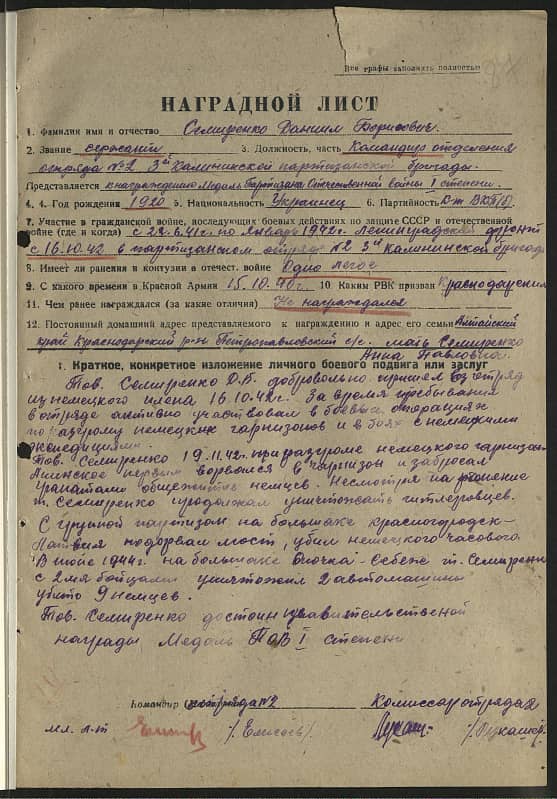 Все графы заполнять полностью
НАГРАДНОЙ ЛИСТ
1. Фамилия имя и отчество Семиренко Даниил Борисович.
2. Звание сержант 3. Должность, часть Командир отделения
отряда №2 3й Калининской партизанской бригады.
Представляется к награждению Медаль Партизана Отечественной войны I степени.
4. 4. Год рождения 1920 5. Национальность Украинец 6. Партийность К-т ВКП(б)
7. Участие в гражданской войне, последующих боевых действиях по защите СССР и отечественной
войне (где и когда) с 22.6.41г. по Январь 1942г. Ленинградский фронт
с 16.10.42 в партизанском отряде №2 3й Калининской бригады
8. Имеет ли ранения и контузии в отечест. войне Одно легкое
9. С какого времени в Красной Армии 15.10.40г. 10. Каким РВК призван Краснодарским
11. Чем ранее награждался (за какие отличия) Не награждался
12. Постоянный домашний адрес представляемого к награждению и адрес его семьи Алтайский
край Краснодарский р-н Петропавловский с/с. мать Семиренко
Анна Павловна.
1. Краткое, конкретное изложение личного боевого подвига или заслуг
Тов. Семиренко Д.Б. добровольно пришел в отряд
из немецкого плена 16.10.42г. За время пребывания
в отряде активно участвовал в боевых операциях
по разгрому немецких гарнизонов и в боях с немецкими
экспедициями.
Тов. Семиренко 19.11.42г. при разгроме немецкого гарнизона
первым ворвался в гарнизон и забросал
гранатами общежитие немцев. Несмотря на ранение
т. Семиренко продолжал уничтожать гитлеровцев.
С группой партизан на большаке Красногородск-
Латвия подорвал мост, убил немецкого часового
В июне 1944г. на большаке Опочка-Себеж т. Семиренко
с 2мя бойцами уничтожил 2 автомашины
убито 9 немцев.
Тов. Семиренко достоин правительственной
награды Медаль ПОВ I степени
Командир отряда №2 Комиссар отряда
мл. л-т /Елисеев/.